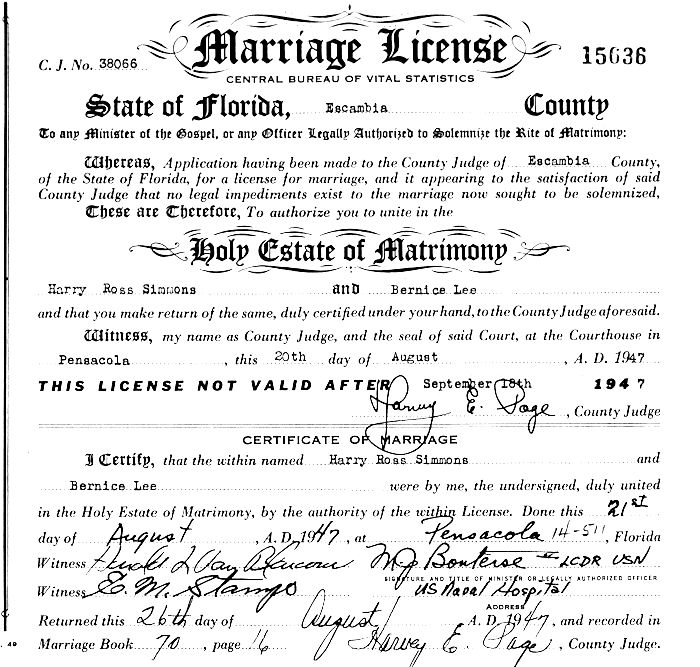 Marriage License
C. J. No. 38066
15036
CENTRAL BUREAU OF VITAL STATISTICS
State of Florida, Escambia County
To any Minister of the Gospel, or any Officer Legally Authorized to Solemnize the Rite of Matrimony:
Whereas, Application having been made to the County Judge of Escambia County,
of the State of Florida, for a license for marriage, and it appearing to the satisfaction of said
County Judge that no legal impediments exist to the marriage now sought to be solemnized,
These are Therefore, To authorize you to unite in the
Holy Estate of Matrimony
Harry Ross Simmons and Bernice Lee
and that you make return of the same, duly certified under your hand, to the County Judge aforesaid.
Witness, my name as County Judge, and the seal of said Court, at the Courthouse in
Pensacola, this 20th day of August, A. D. 1947
THIS LICENSE NOT VALID AFTER September 18th 1947
Harvey E. Page, County Judge
CERTIFICATE OF MARRIAGE
I Certify, that the within named Harry Ross Simmons and
Bernice Lee were by me, the undersigned, duly united
in the Holy Estate of Matrimony, by the authority of the within License. Done this 21st
day of August, A. D. 1947, at Pensacola 14-511, Florida
Witness M J Bouterse LCDR USN
SIGNATURE AND TITLE OF MINISTER OR LEGALLY AUTHORIZED OFFICER
Witness E. M. Stampo US Naval Hospital
ADDRESS
Returned this 26th day of August A. D. 1947, and recorded in
49 Marriage Book 70, page 16 Harvey E. Page, County Judge.